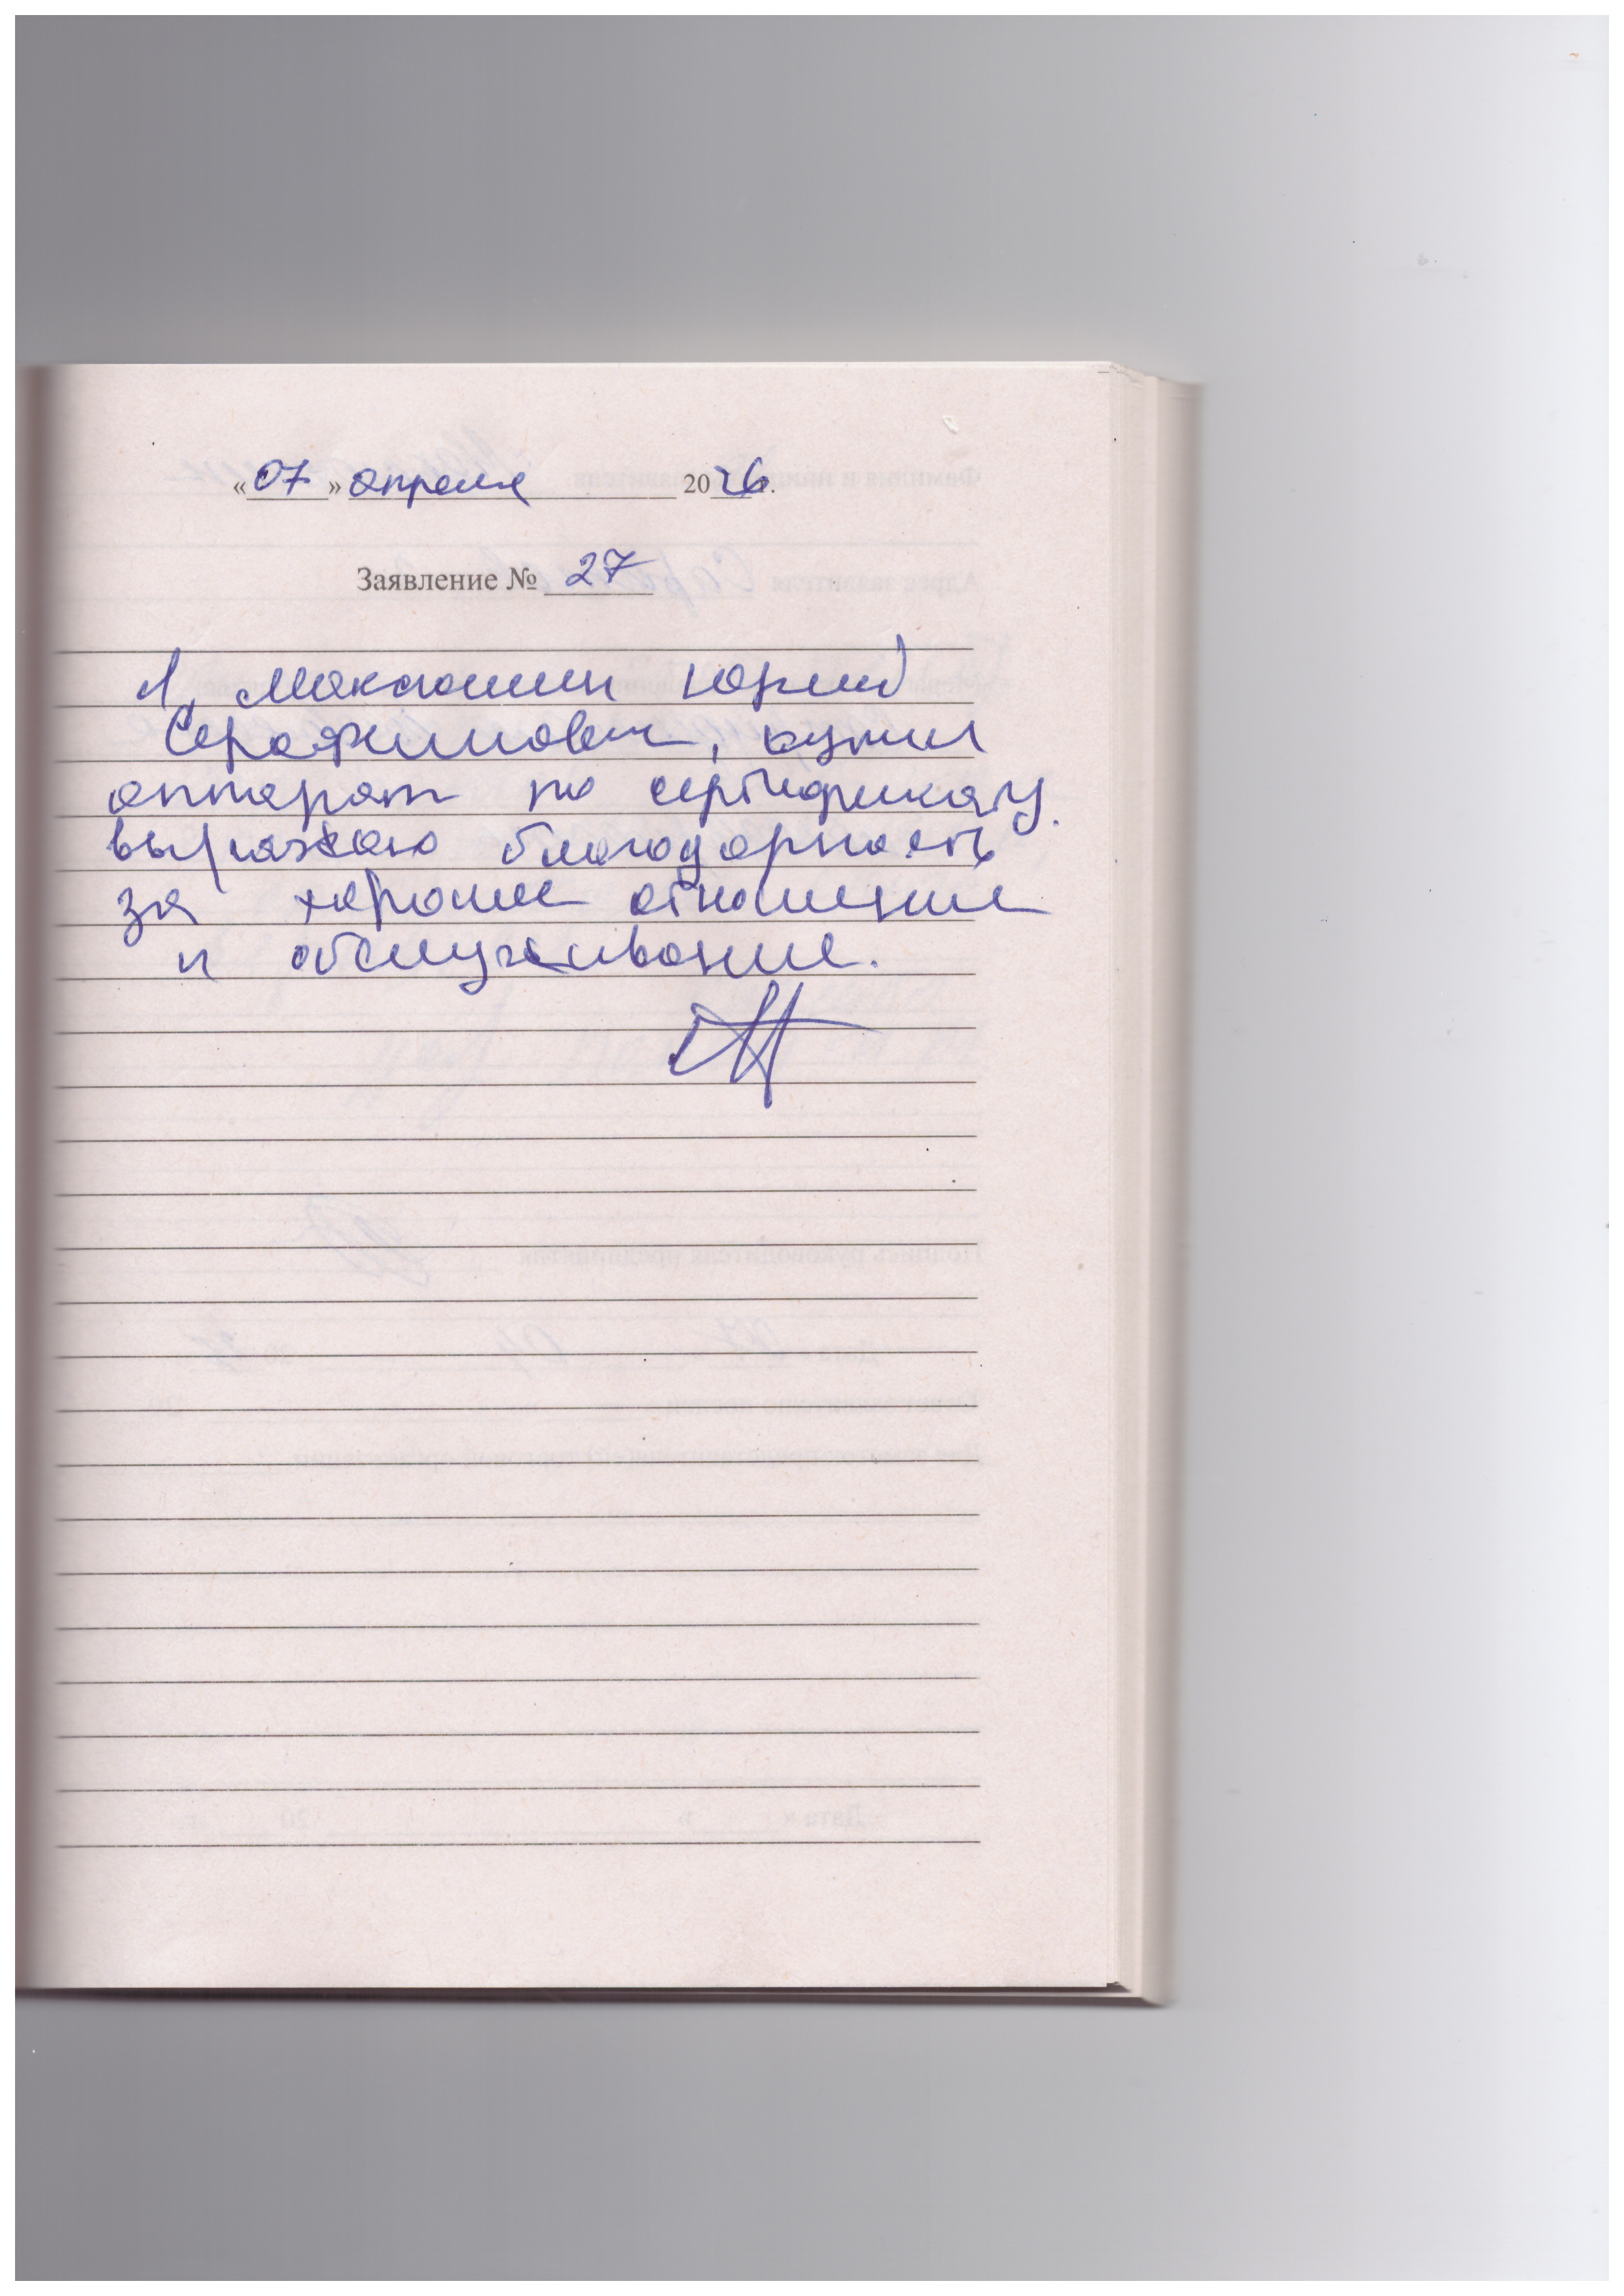 «07» апреля 2026 г.
Заявление № 27
Я, Максюшин Юрий
Серафимович, купил
аппарат по сертификату.
выражаю благодарность
за хорошее отношение
и обслуживание.